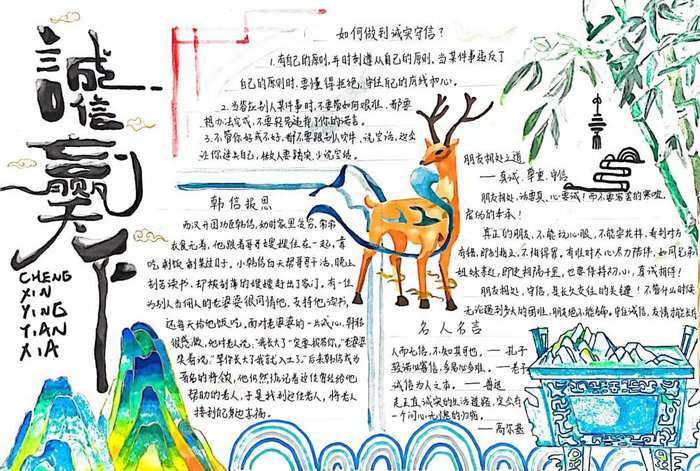 誠信赢天下
CHENG
XIN
YING
TIAN
XIA
如何做到诚实守信?
1.有自己的原则,并时刻遵从自己的原则,当某件事违反了
自己的原则时,要懂得拒绝,守住自己的底线和心。
2.当答应别人某件事时,不要管如何艰难,都要
想办法完成,不要轻易违背了你的诺言。
3.不管你好或不好,都不要跟别人吹牛、说空话,这会
让你迷失自己,做人要踏实,少说空话。
韩信报恩
西汉开国功臣韩信,幼时家里贫穷,常常
衣食无着,他跟着哥哥嫂嫂住在一起,靠
吃剩饭剩菜过日子。小韩信白天帮哥哥干活,晚上
刻苦读书,却被刻薄的嫂嫂赶出了家门。有一位
为别人当佣人的老婆婆很同情他,支持他读书,
还每天给他饭吃。面对老婆婆的一片诚心,韩信
很感激,他对老人说:“我长大了一定要报答你。”老婆婆
笑着说:“等你长大了我就入土了。”后来韩信成为
著名的将领,他仍然惦记着这位曾经给他
帮助的老人,于是找到这位老人,将老人
接到自己身边享福。
朋友相处之道
——真诚、尊重、守信
朋友相处,话要真,心要诚!而不要寄宽的寒喧,
虚伪的奉承!
真正的朋友,不能玩心眼,不能学攀样,看到对方
有错,即刻指正,不相得罪,有难时尽心尽力陪伴,如同兄弟
姐妹亲热,即使相隔千里,也要保持初心,真诚相待!
朋友相处,守信,是长久交往的关键!不管什么时候
无论遇到多大的困难,朋友绝不能忘。守住诚信,友情才能长
名人名言
人而无信,不知其可也。——孔子
轻诺必寡信,多易必多难。——老子
诚信为人之本。——鲁迅
走正直诚实的生活道路,定会有
一个问心无愧的归宿。
——高尔基